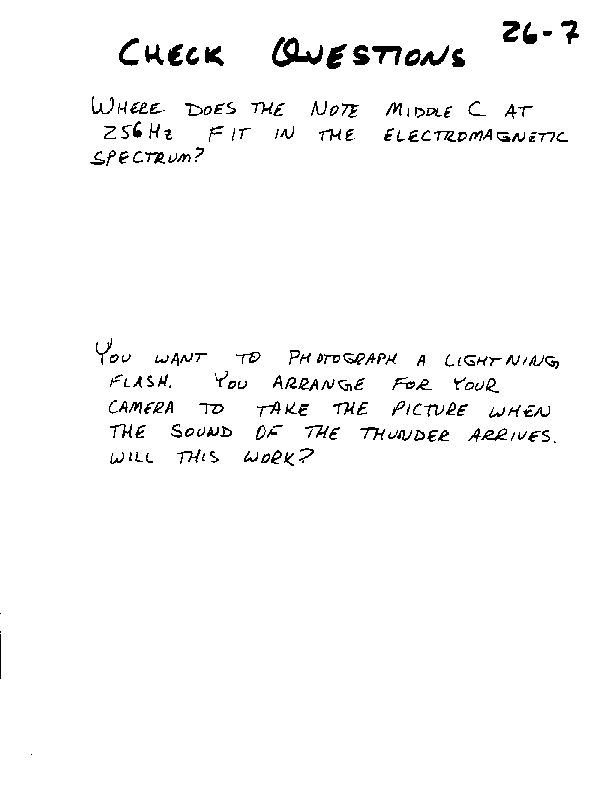 26-7
CHECK QUESTIONS
WHERE DOES THE NOTE MIDDLE C AT
256Hz FIT IN THE ELECTROMAGNETIC
SPECTRUM?
YOU WANT TO PHOTOGRAPH A LIGHTNING
FLASH. YOU ARRANGE FOR YOUR
CAMERA TO TAKE THE PICTURE WHEN
THE SOUND OF THE THUNDER ARRIVES.
WILL THIS WORK?